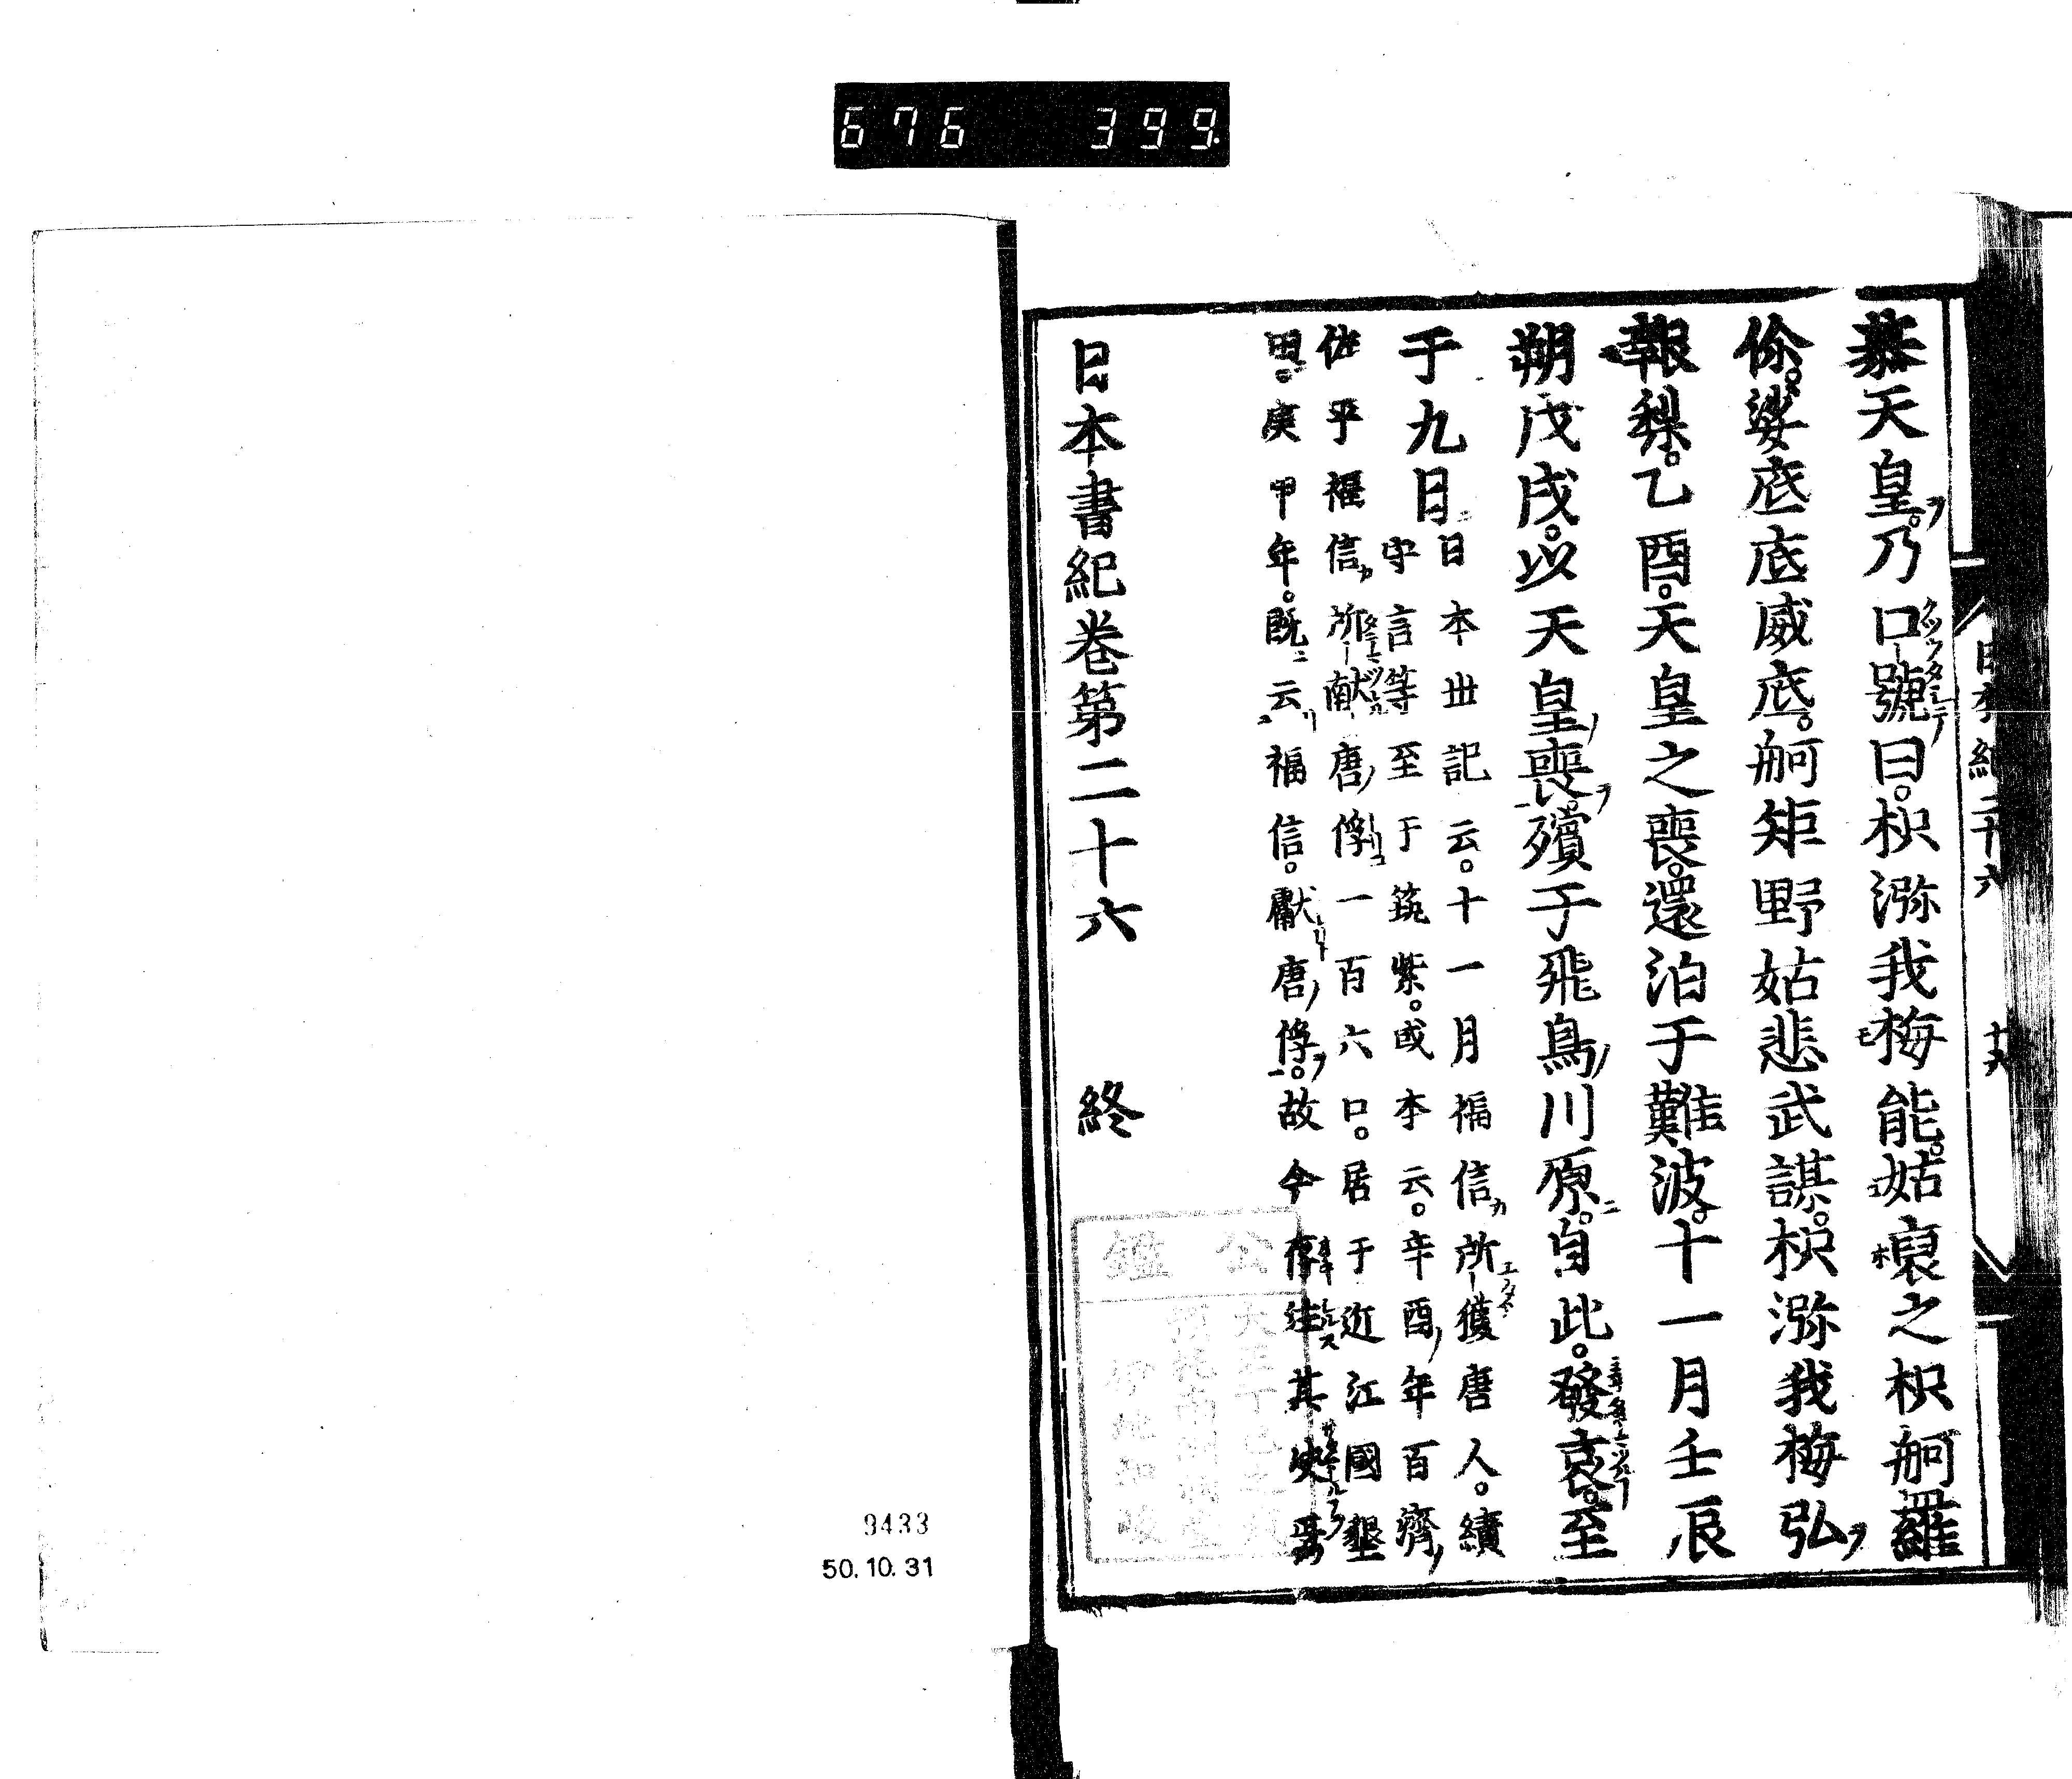 676 399
日本紀二十六
慕天皇。乃口號曰。枳瀰我梅能。姑裒之枳舸羅
儞。婆底底威底。舸矩野姑悲武謀。枳瀰我梅弘
報梨。乙酉。天皇之喪。還泊于難波。十一月壬辰
朔戊戌。以天皇喪。殯于飛鳥川原。自此。發哀。至
于九日
日本世記云。十一月福信所獲唐人。續
守言等至于筑紫。或本云。辛酉年百濟
佐平福信所献唐俘一百六口。居于近江國墾
田。庚申年。既云福信。獻唐俘。故今存注其
日本書紀卷第二十六 終
公鑑
9433
50.10.31